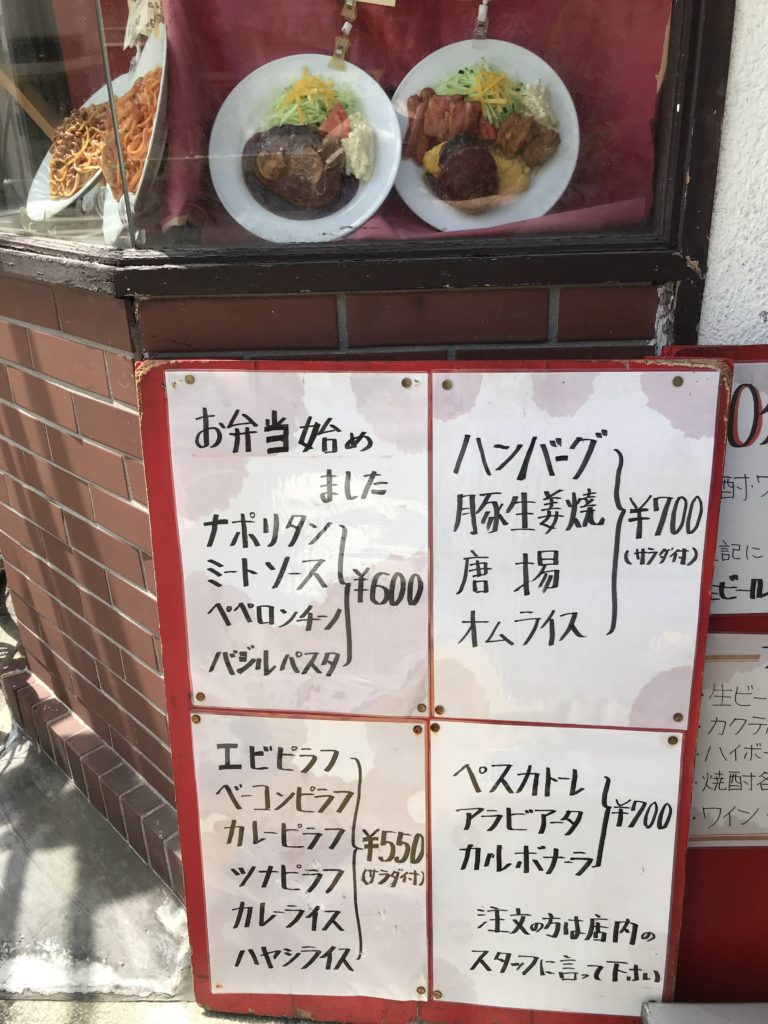 お弁当始め
ました
ナポリタン
ミートソース
ペペロンチーノ
バジルパスタ
¥600
ハンバーグ
豚生姜焼
唐揚
オムライス
¥700
(サラダ付)
エビピラフ
ベーコンピラフ
カレーピラフ
ツナピラフ
カレーライス
ハヤシライス
¥550
(サラダ付)
ペスカトーレ
アラビアータ
カルボナーラ
¥700
注文の方は店内の
スタッフに言って下さい
酎・ワ
記に
生ビール
・生ビー
・カクテ
・ハイボー
・焼酎各
・ワイン